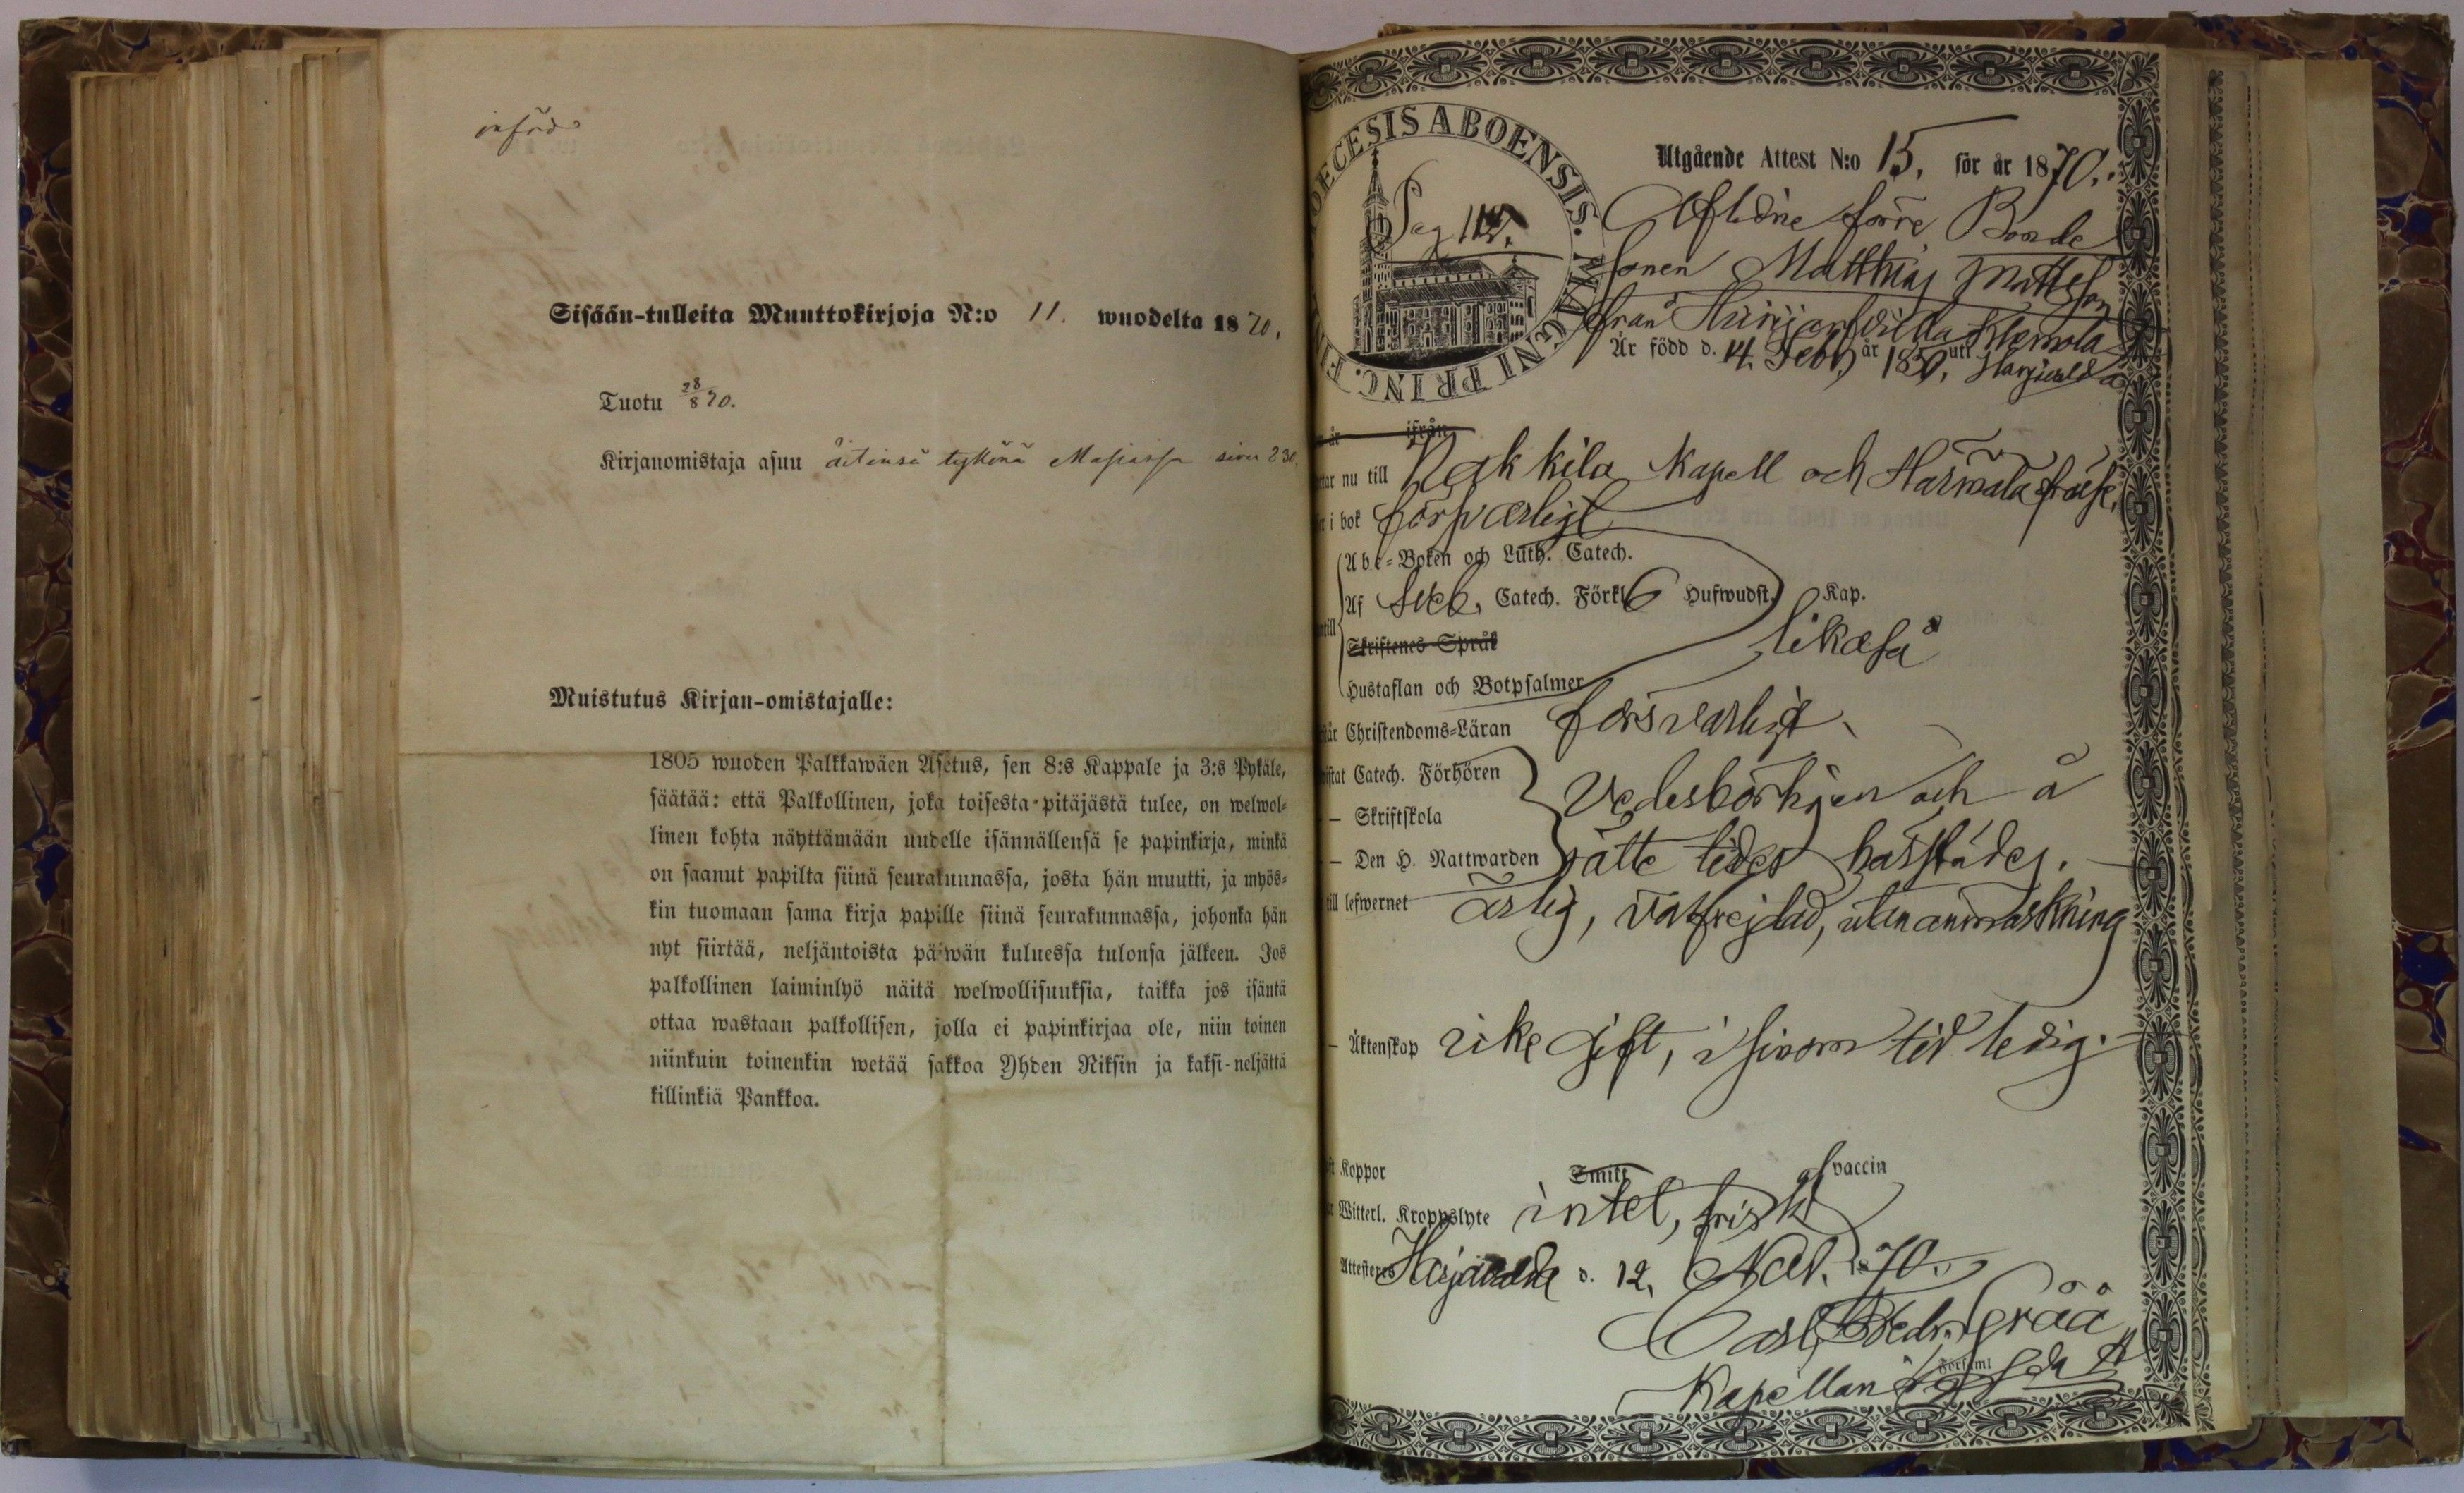 införd
Sisään-tulleita Muuttokirjoja N:o 11. wuodelta 1870.
Tuotu 28/8 70.
Kirjanomistaja asuu äitinsä tykönä sivu 230.
Muistutus Kirjan-omistajalle:
1805 wuoden Palkkawäen Asetus, sen 8:s Kappale ja 3:s Pykäle,
säätää: että Palkollinen, joka toisesta pitäjästä tulee, on welwol-
linen kohta näyttämään uudelle isännällensä se papinkirja, minkä
on saanut papilta siinä seurakunnassa, josta hän muutti, ja myös-
kin tuomaan sama kirja papille siinä seurakunnassa, johonka hän
nyt siirtää, neljäntoista päiwän kuluessa tulonsa jälkeen. Jos
palkollinen laiminlyö näitä welwollisuuksia, taikka jos isäntä
ottaa wastaan palkollisen, jolla ei papinkirjaa ole, niin toinen
niinkuin toinenkin wetää sakkoa Yhden Riksin ja kaksi-neljättä
killinkiä Pankkoa.
OECESIS ABOENSIS. MAGNI PRINC. FIN
Pag
Utgående Attest N:o 15. för år 1870.
Aflidne förre Bonde
sonen Matthias Mattsson
från Harjanvalda Klemola
Är född d. 14. Febr. år 1850, uti Harjavalda
år ifrån
nu till Nakkila Kapell och Harmala
i bok försvarligt
Abc-Boken och Luth. Catech.
Af Sveb. Catech. Förkl. 6 Hufwudst. Kap.
Skriftenes Språk
likaså
Hustaflan och Botpsalmer
Christendoms-Läran försvarligt
Catech. Förhören
Vederbörligen och å
— Skriftskola
— Den H. Nattwarden rätte tider härstädes.
till lefwernet ärlig, välfrejdad, utan anmärkning
— Äktenskap icke gift, i sinom tid ledig.
Koppor Smitt af vaccin
Witterl. Kroppslyte intet, frisk
Attesteres Harjavalda d. 12. Nov. 1870.
Carl Fredr. Gråå
Kapellan Församl